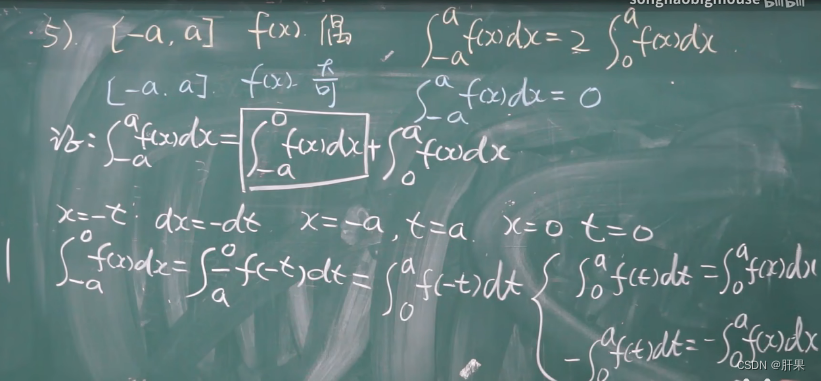 songhaobigmouse bilibili
5). [-a, a] f(x). 偶 ∫_{-a}^{a} f(x)dx = 2 ∫_{0}^{a} f(x)dx.
[-a. a]. f(x). 奇 ∫_{-a}^{a} f(x)dx = 0
证: ∫_{-a}^{a} f(x)dx = ∫_{-a}^{0} f(x)dx + ∫_{0}^{a} f(x)dx
x=-t. dx=-dt x=-a, t=a. x=0 t=0
∫_{-a}^{0} f(x)dx = ∫_{a}^{0} - f(-t)dt = ∫_{0}^{a} f(-t)dt { ∫_{0}^{a} f(t)dt = ∫_{0}^{a} f(x)dx
-∫_{0}^{a} f(t)dt = -∫_{0}^{a} f(x)dx
CSDN @肝果